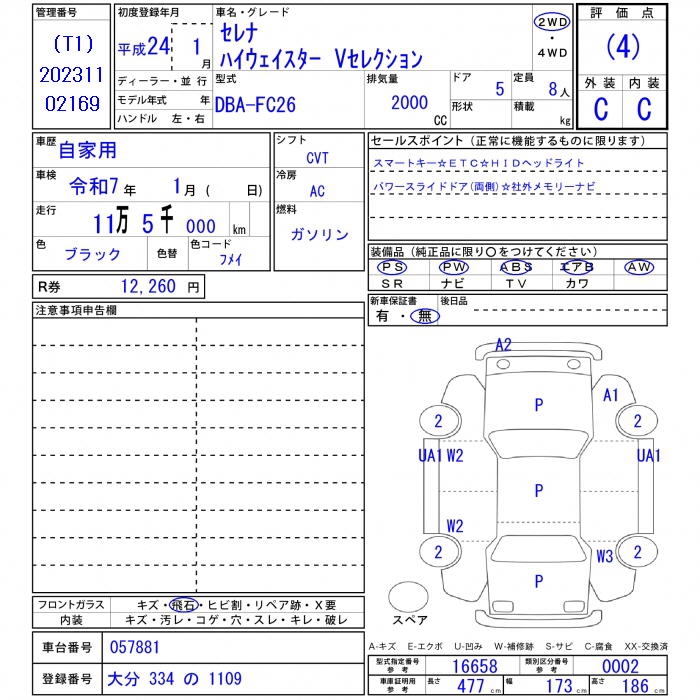 管理番号
(T1)
202311
02169
初度登録年月
平成24年 1月
ディーラー・並行
モデル年式 年
ハンドル 左・右
車名・グレード
セレナ
ハイウェイスター Vセレクション
2WD
・
4WD
型式
DBA-FC26
排気量
2000 CC
ドア 5
形状
定員 8人
積載 kg
評価点
(4)
外装 内装
C C
車歴 自家用
車検 令和7年 1月( 日)
走行
11万5千000 km
色 ブラック
色替
色コード フメイ
R券 12,260 円
シフト
CVT
冷房
AC
燃料
ガソリン
セールスポイント(正常に機能するものに限ります)
スマートキー☆ETC☆HIDヘッドライト
パワースライドドア(両側)☆社外メモリーナビ
装備品(純正品に限り〇をつけてください)
PS PW ABS エアB AW
SR ナビ TV カワ
新車保証書
有・無
後日品
注意事項申告欄
A2
P
A1
2 2
UA1 W2 UA1
P
W2
2 W3 2
P
スペア
フロントガラス キズ・飛石・ヒビ割・リペア跡・X要
内装 キズ・汚レ・コゲ・穴・スレ・キレ・破レ
車台番号 057881
登録番号 大分 334 の 1109
A-キズ E-エクボ U-凹み W-補修跡 S-サビ C-腐食 XX-交換済
型式指定番号参考 16658 類別区分番号参考 0002
車庫証明用参考 長さ 477cm 幅 173cm 高さ 186cm